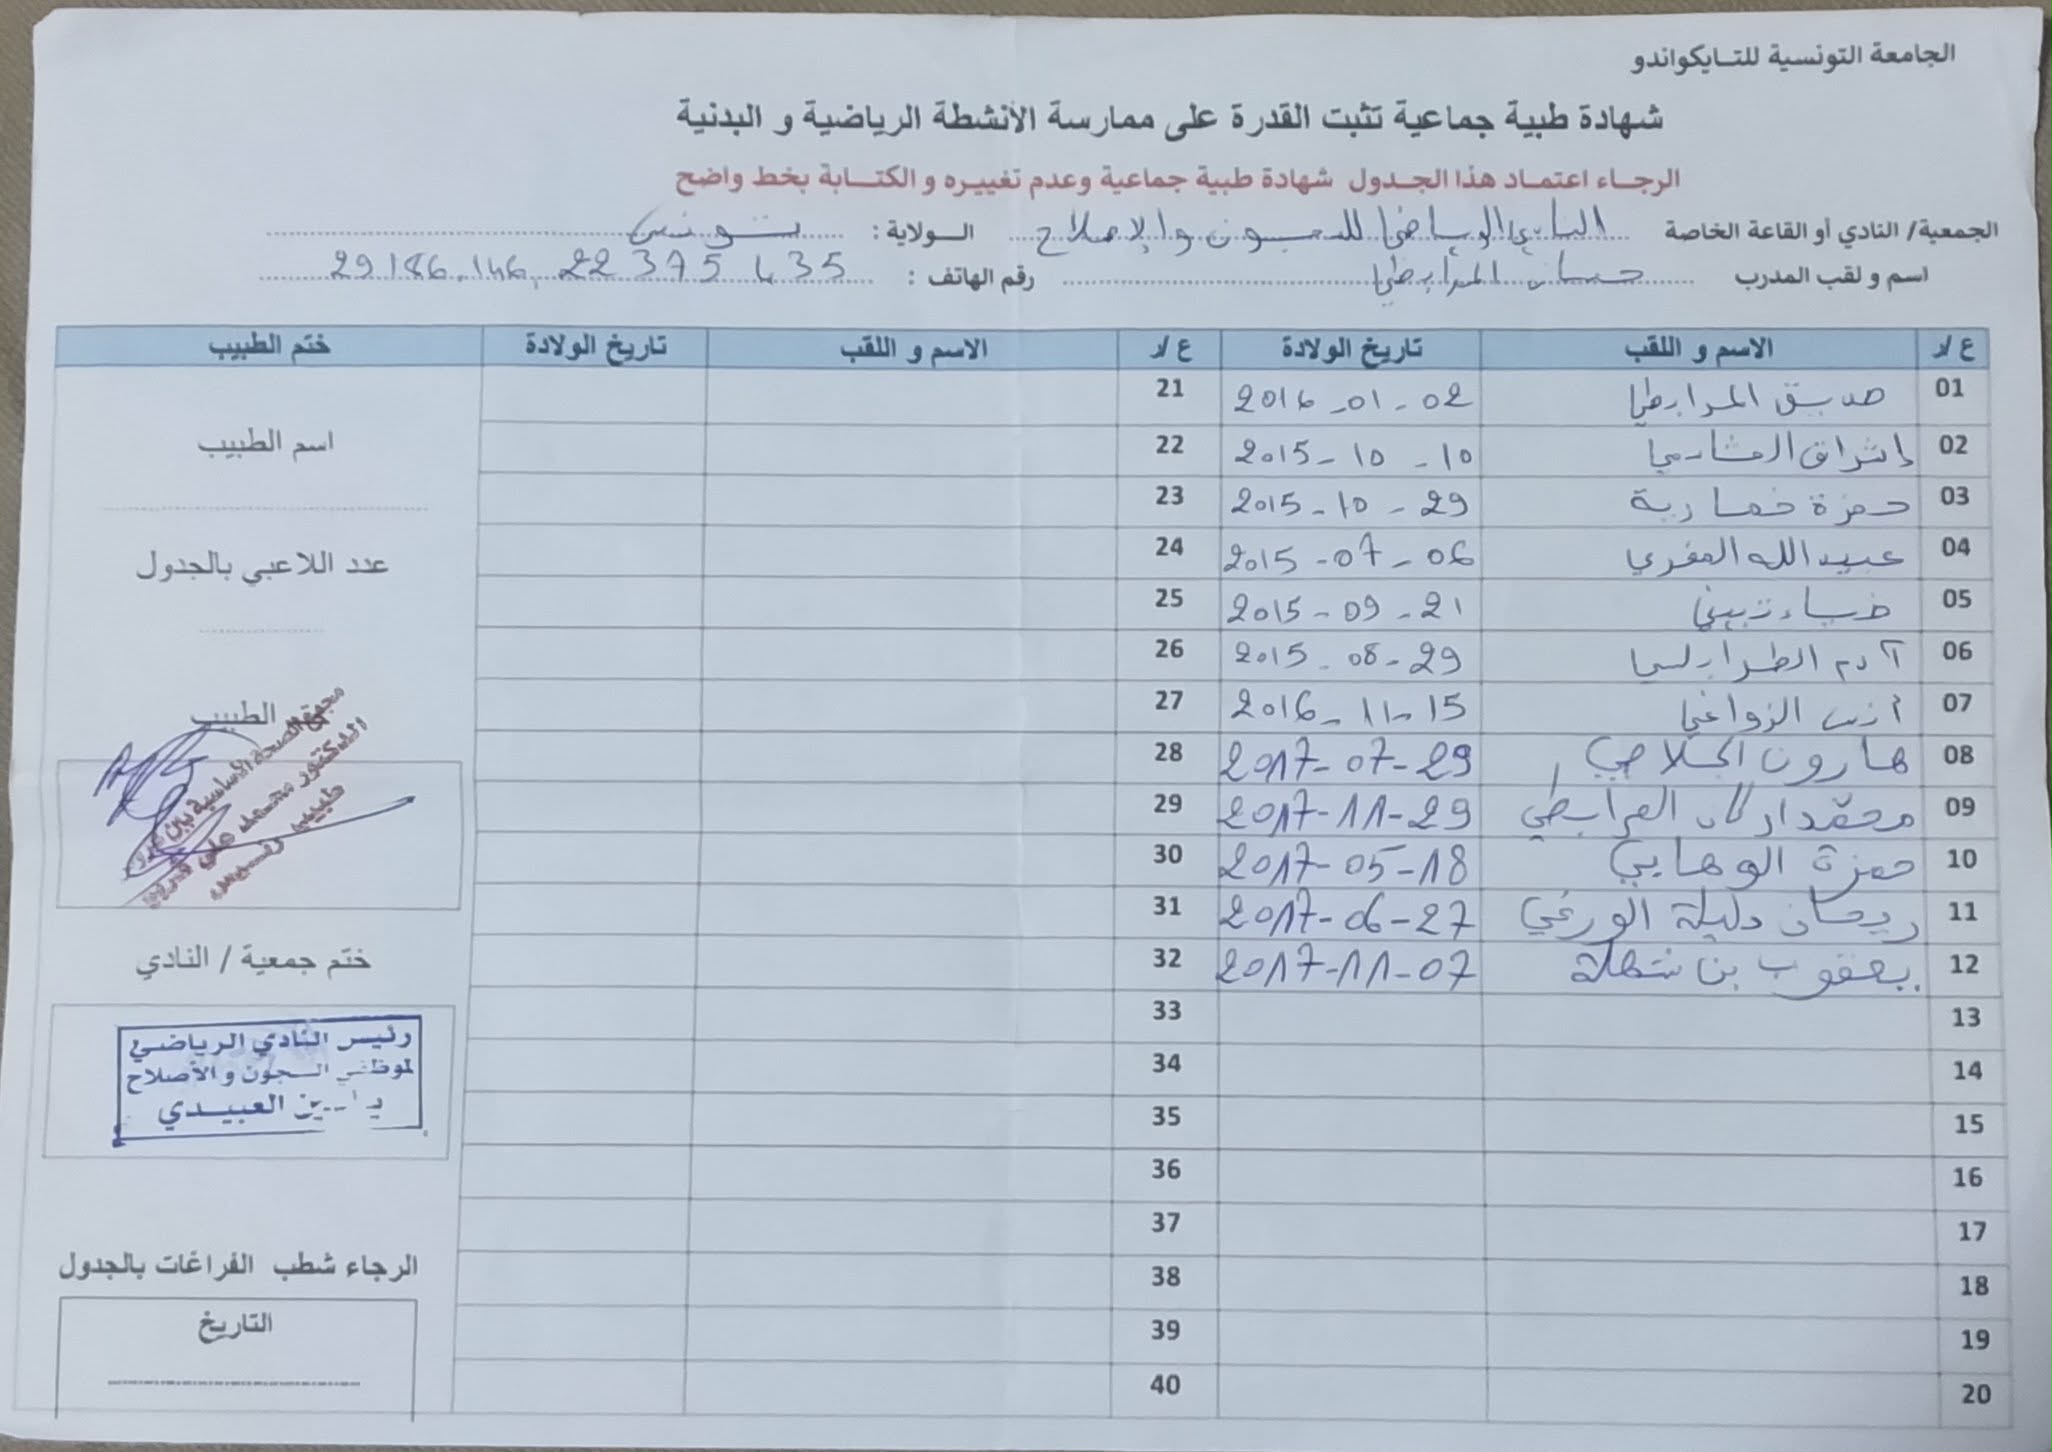 الجامعة التونسية للتـايكواندو
شهادة طبية جماعية تثبت القدرة على ممارسة الأنشطة الرياضية و البدنية
الرجـاء اعتمـاد هذا الجـدول شهادة طبية جماعية وعدم تغييـره و الكتـابة بخط واضح
الجمعية/ النادي أو القاعة الخاصة النادي الرياضي للسجون والإصلاح الـولاية : تونس
اسم و لقب المدرب حسان المرابطي رقم الهاتف : 29186.146, 22 375 435
ع/ر الاسم و اللقب تاريخ الولادة ع/ر الاسم و اللقب تاريخ الولادة ختم الطبيب
01 صديق المرابطي 2016-01-02 21
02 إشراق 2015-10-10 22
اسم الطبيب
03 حمزة خمارية 2015-10-29 23
04 عبيد الله المغري 2015-07-06 24
عدد اللاعبي بالجدول
05 ضياء 2015-09-21 25
06 آدم الطرابلسي 2015-08-29 26
07 أنس الزواغي 2016-11-15 27
الطبيب
08 هارون الجلاصي 2017-07-29 28
09 محمد اركان المرابطي 2017-11-29 29
10 حمزة الوهابي 2017-05-18 30
الدكتور محمد علي
طبيب رئيس
11 ريحان دليلة الورغي 2017-06-27 31
12 يعقوب بن شهلة 2017-11-07 32
ختم جمعية / النادي
13 33
رئيس النادي الرياضي
لموظفي السجون والأصلاح
ياسين العبيدي
14 34
15 35
16 36
17 37
18 38
الرجاء شطب الفراغات بالجدول
19 39
التاريخ
20 40